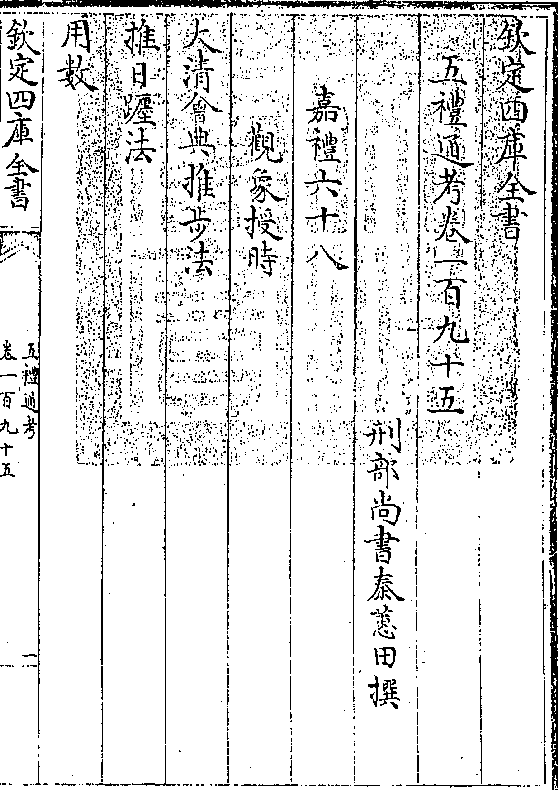 欽定四庫全書
五禮通考卷一百九十五
刑部尚書秦蕙田撰
嘉禮六十八
觀象授時
大清會典推步法
推日躔法
用數
欽定四庫全書
五禮通考
卷一百九十五
一